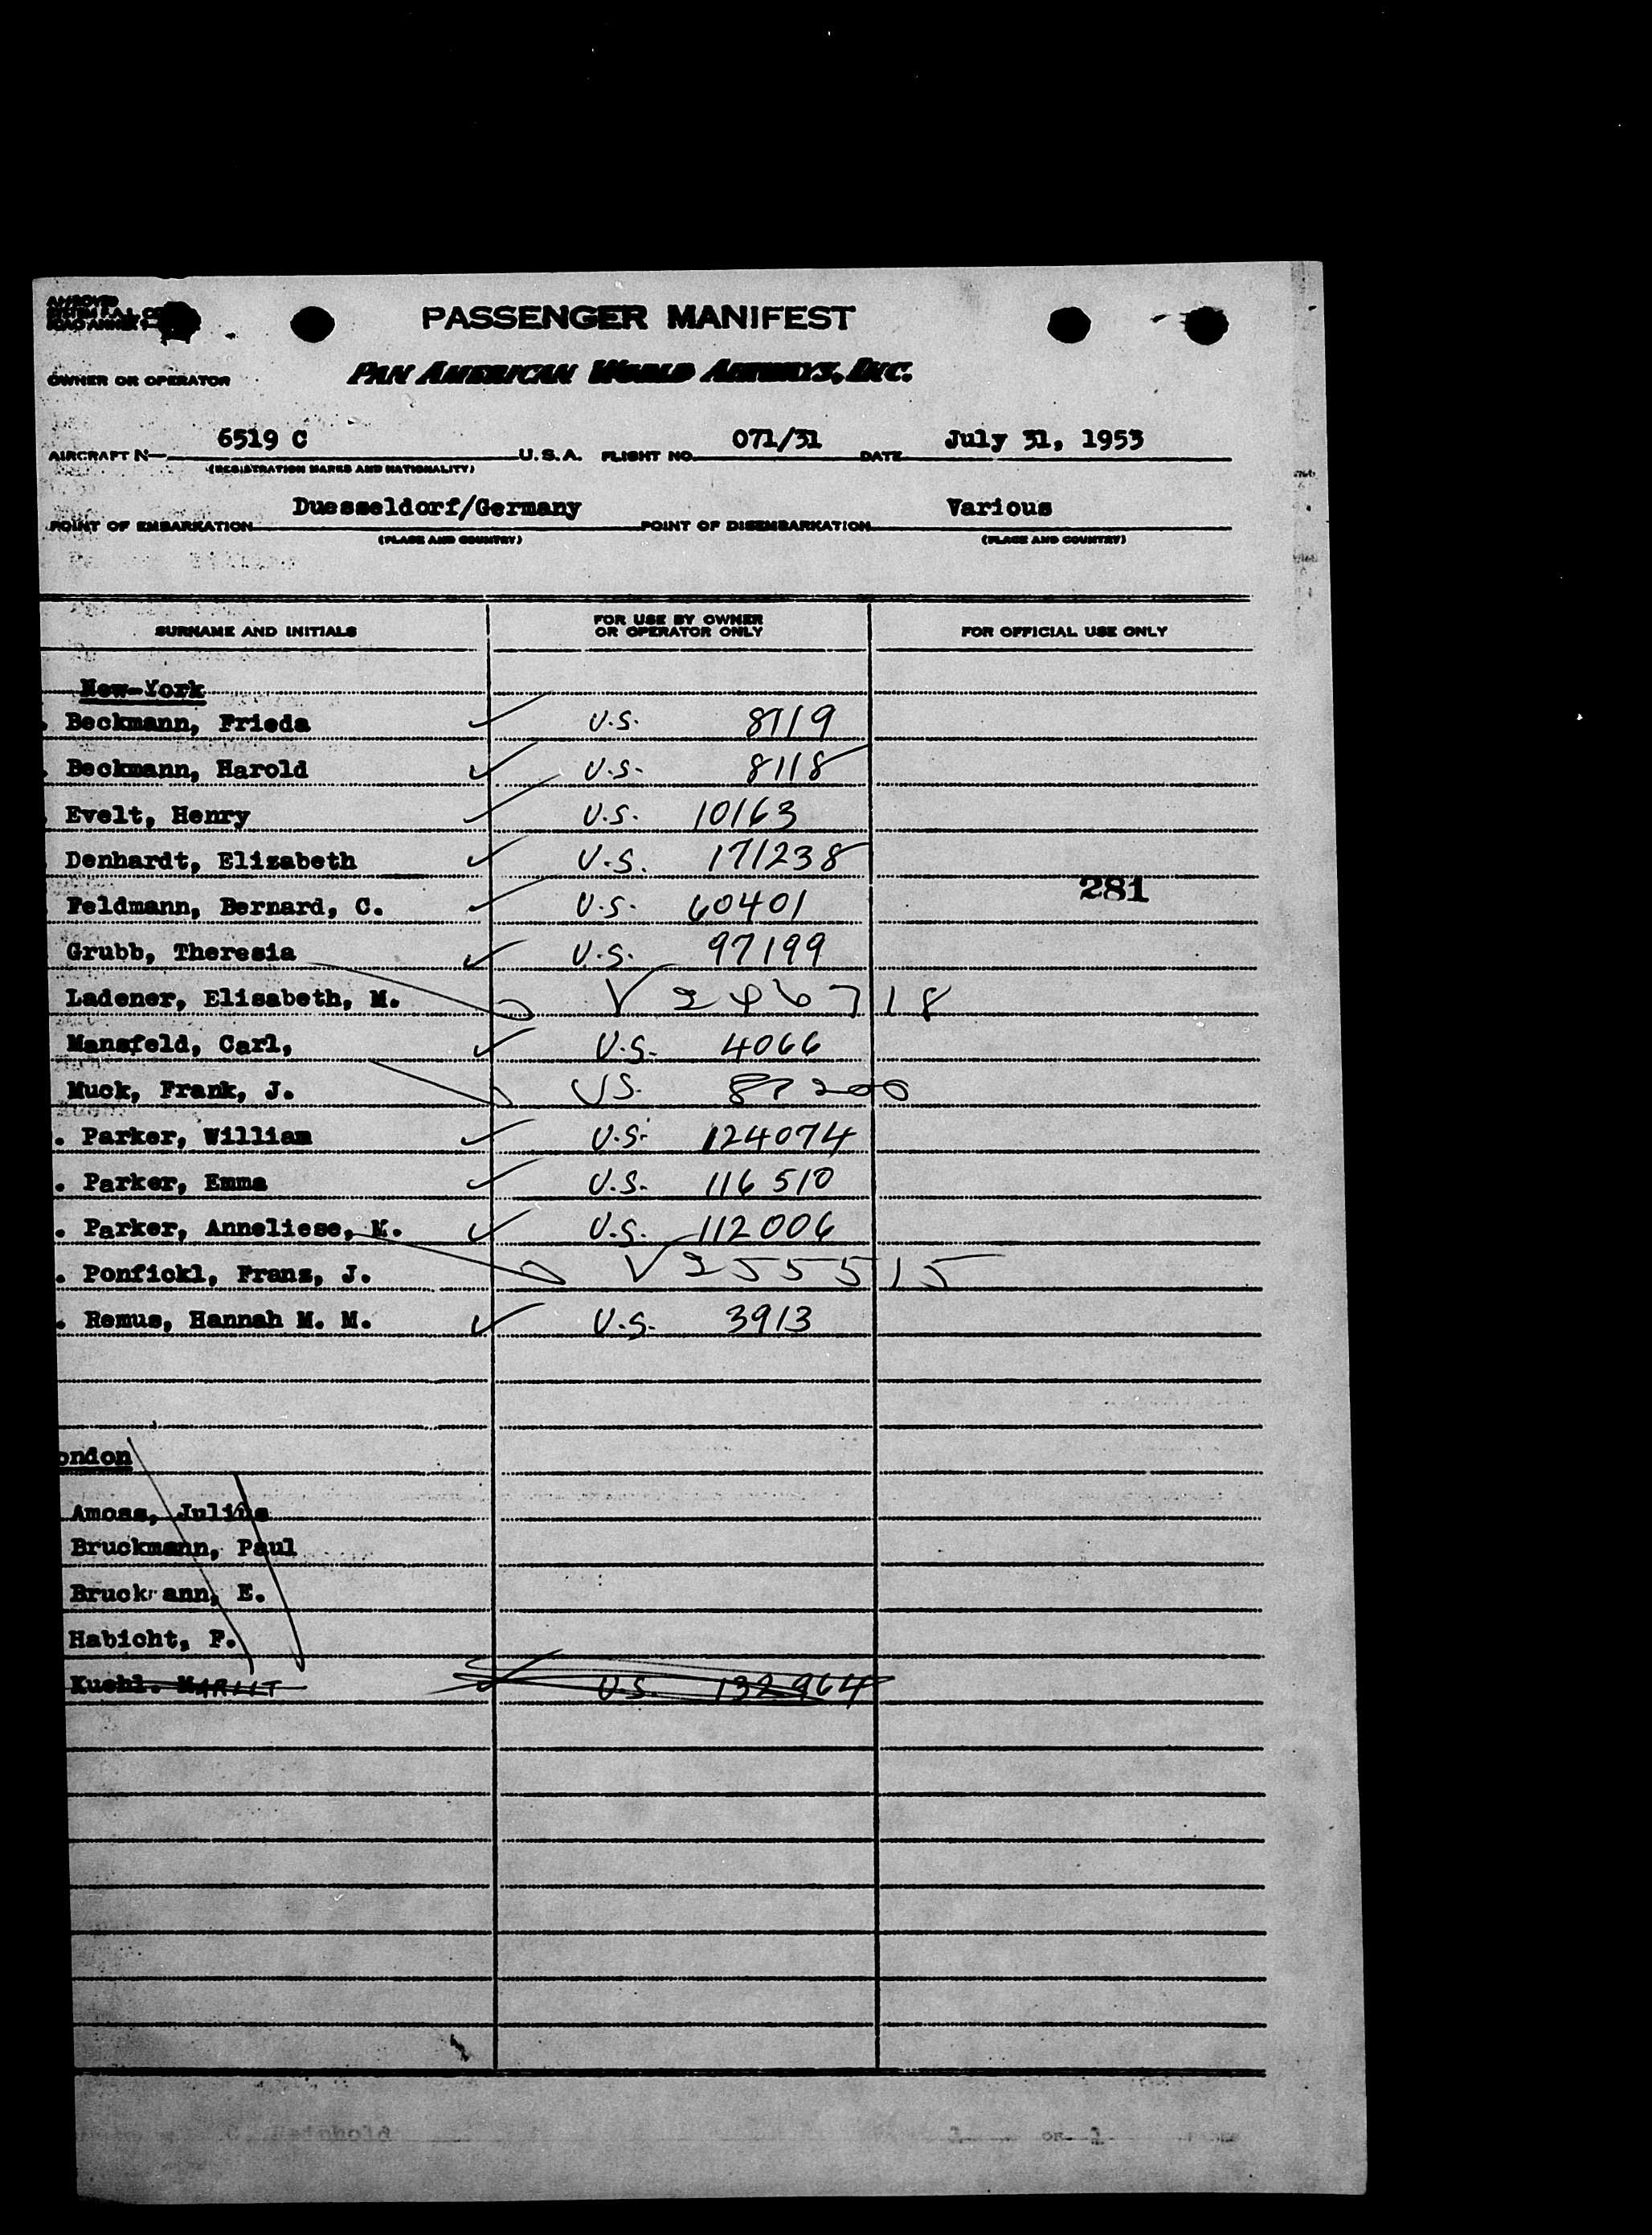 APPROVED
OWNER OR OPERATOR
PASSENGER MANIFEST
PAN AMERICAN WORLD AIRWAYS, INC.
AIRCRAFT N— 6519 C U.S.A. FLIGHT NO. 071/31 DATE July 31, 1953
(REGISTRATION MARKS AND NATIONALITY)
POINT OF EMBARKATION Duesseldorf/Germany POINT OF DISEMBARKATION Various
(PLACE AND COUNTRY) (PLACE AND COUNTRY)
SURNAME AND INITIALS FOR USE BY OWNER OR OPERATOR ONLY FOR OFFICIAL USE ONLY
New-York
Beckmann, Frieda U.S. 8119
Beckmann, Harold U.S. 8118
Evelt, Henry U.S. 10163
Denhardt, Elizabeth U.S. 171238
281
Feldmann, Bernard, C. U.S. 60401
Grubb, Theresia U.S. 97199
Ladener, Elisabeth, M. V 246718
Mansfeld, Carl, U.S. 4066
Muck, Frank, J. US. 87200
. Parker, William U.S. 124074
. Parker, Emma U.S. 116510
. Parker, Anneliese, M. U.S. 112006
. Ponfickl, Franz, J. V 255515
. Remus, Hannah M. M. U.S. 3913
ondon
Amoss, Julius
Bruckmann, Paul
Bruck ann, E.
Habicht, P.
Kuehl. MARLIT U.S. 132964